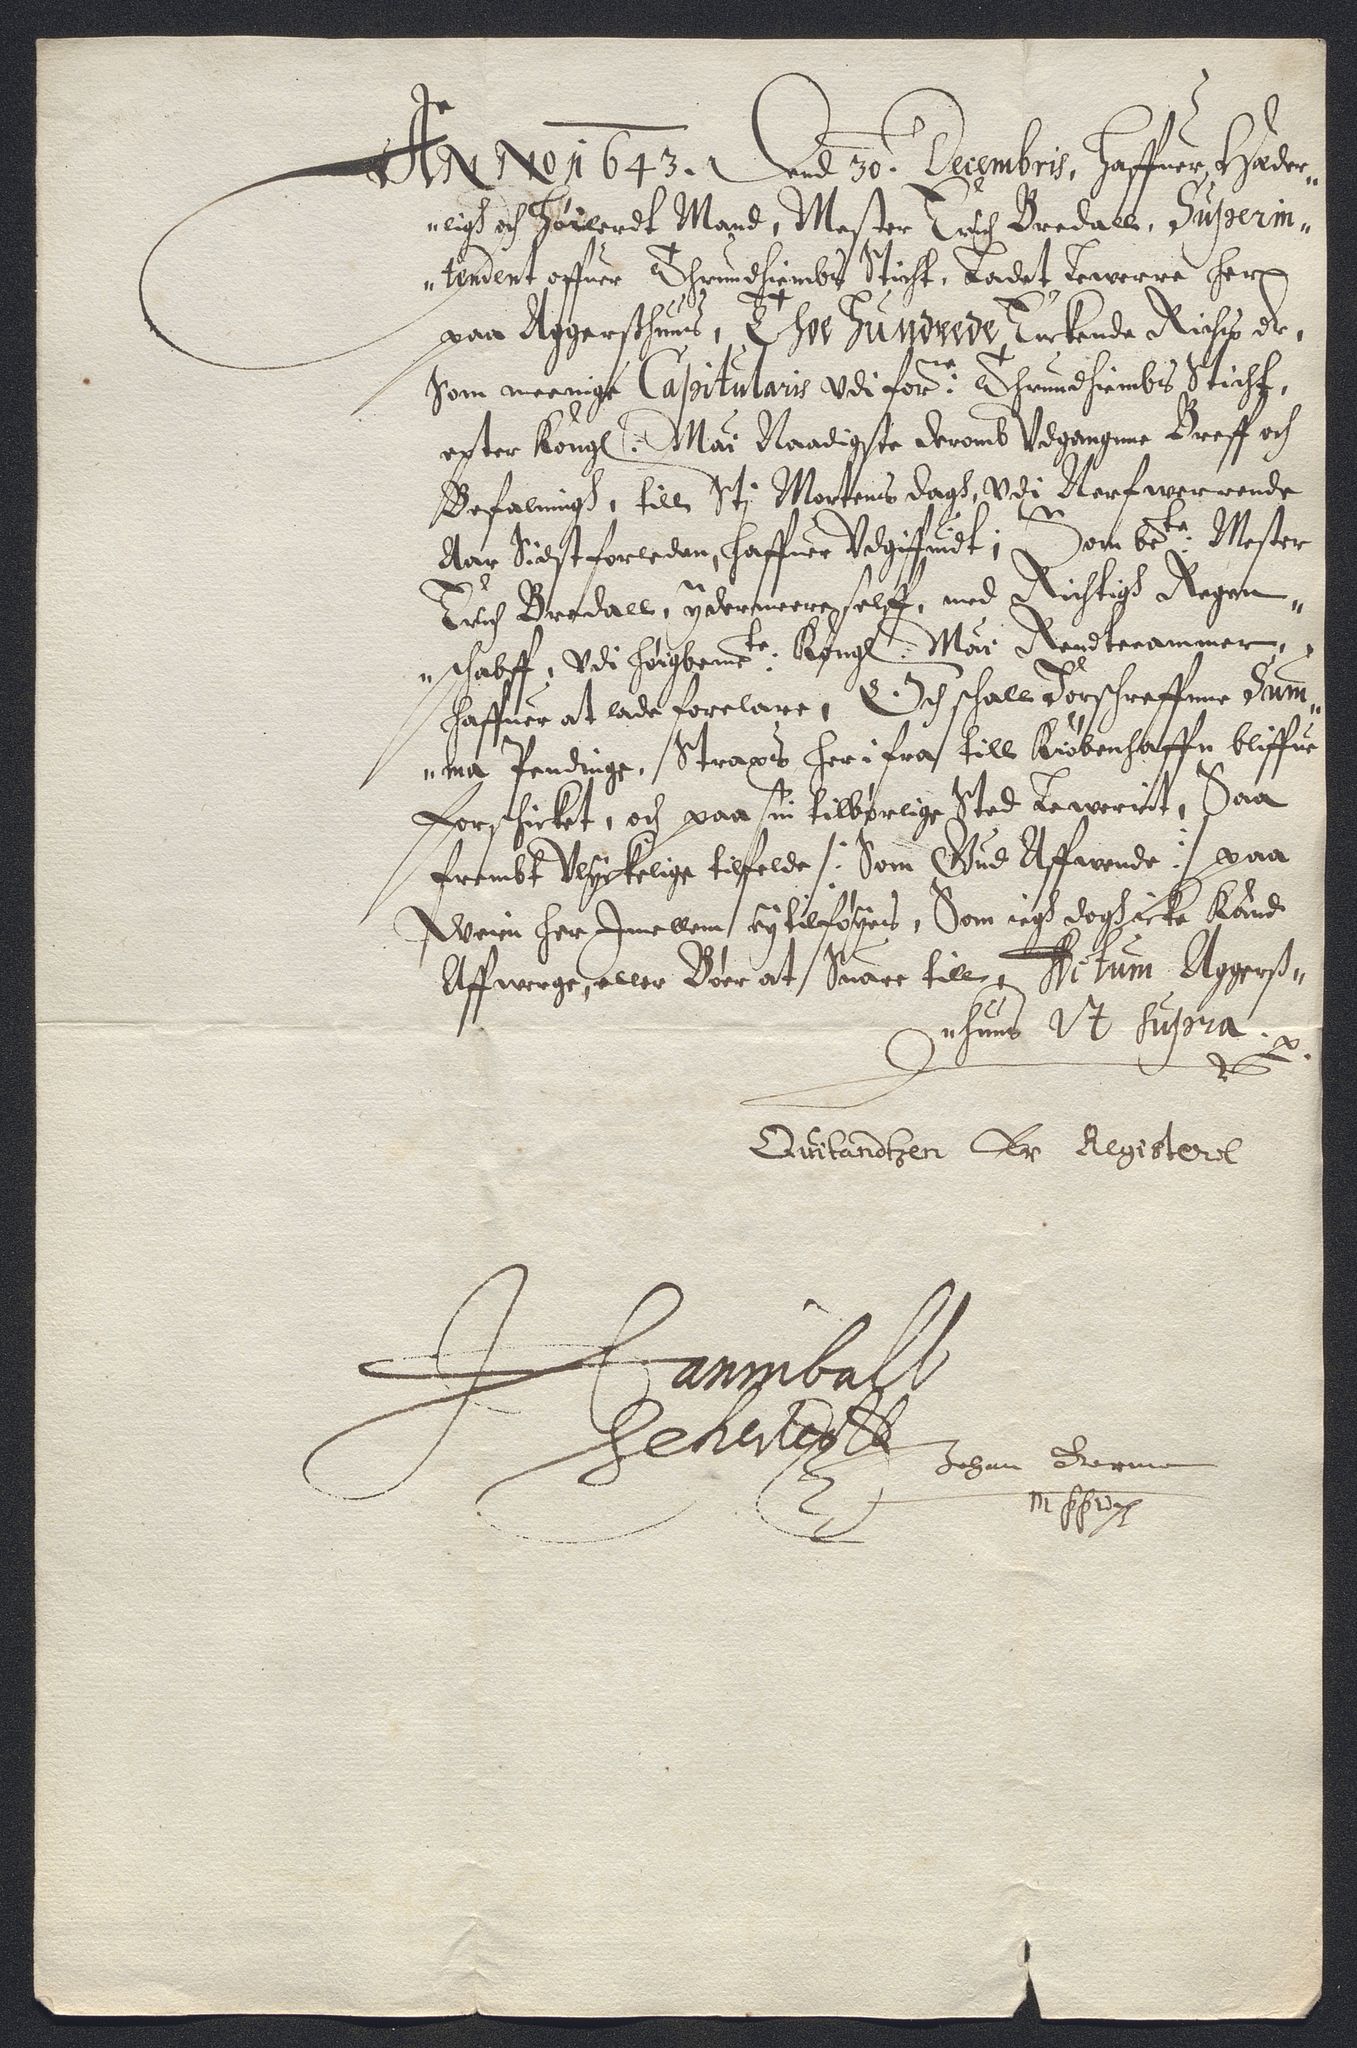 ANNO 1643. Dend 30. Decembris, Haffuer Hæder„
„ligh och Høilerdt Mand, Mester Erich Bredall, Superin„
„tendent offuer Thrundhiembs Sticht, Ladet Leverre her
paa Aggershuus, Thoe Hundrede, Rix dr,
Som meenige Capitularis vdi forne: Thrundhiembs Sticht,
epter Kongl: Mai Naadigste deromb Vdgangnne Breff och
Befalningh, till Sti Mortens dagh, Vdi Nerfwerrende
Aar Sidstforleden, haffuer Vdgiffuidt; Som bete: Mester
Erich Bredall, ydermeere self, med Richtigh Regen„
„schabff, Vdi høigbemte: Kongl: Mai Rendtecammer,
haffuer at lade forclare, Och schall Forschreffnne Sum„
„ma Pendinge, Straxs her ifra till Kiøbenhaffn bliffue
forschicket, och paa sin tilbørlige Sted Leverit, Saa
frembt Vlyckelige tilfelde /: Som Gud Affwende :/ paa
Weien her Imellem ey tilføyes, Som iegh dogh icke Kand
Affwerge, eller Bøer at Suare till, Actum Aggers„
„huus Vt supra.
Quitandtzen Er Registerel
Hannibal
Sehested
Johan
mppria